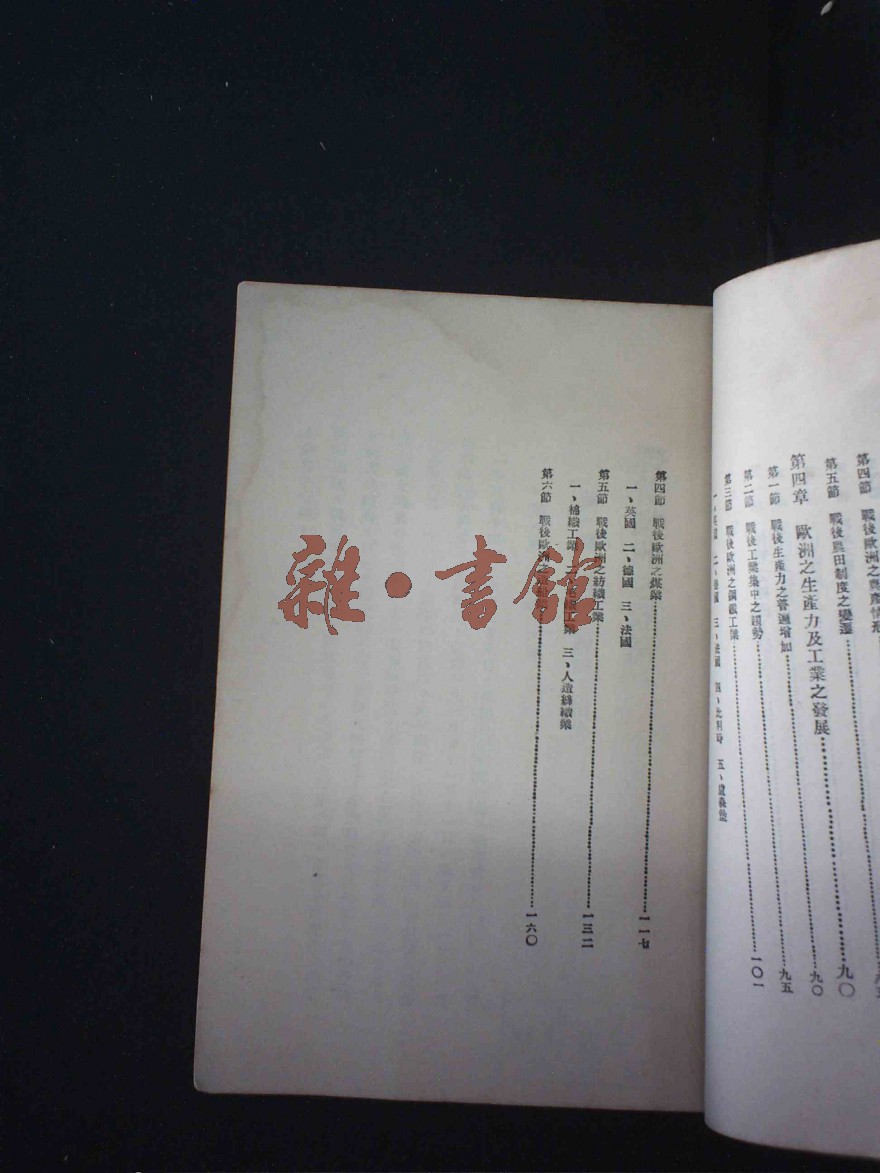 第四節 戰後歐洲之農產情形
第五節 戰後農田制度之變遷
第四章 歐洲之生產力及工業之發展……九〇
第一節 戰後生產力之普遍增加……九〇
第二節 戰後工業集中之趨勢……九五
第三節 戰後歐洲之鋼鐵工業……一〇一
一、英國 二、德國 三、法國 四、比利時 五、盧森堡
第四節 戰後歐洲之煤業……一一七
一、英國 二、德國 三、法國
第五節 戰後歐洲之紡織工業……一三二
一、棉織工業 二、 工業 三、人造絲織業
第六節 戰後歐洲之 ……一六〇
雜·書館